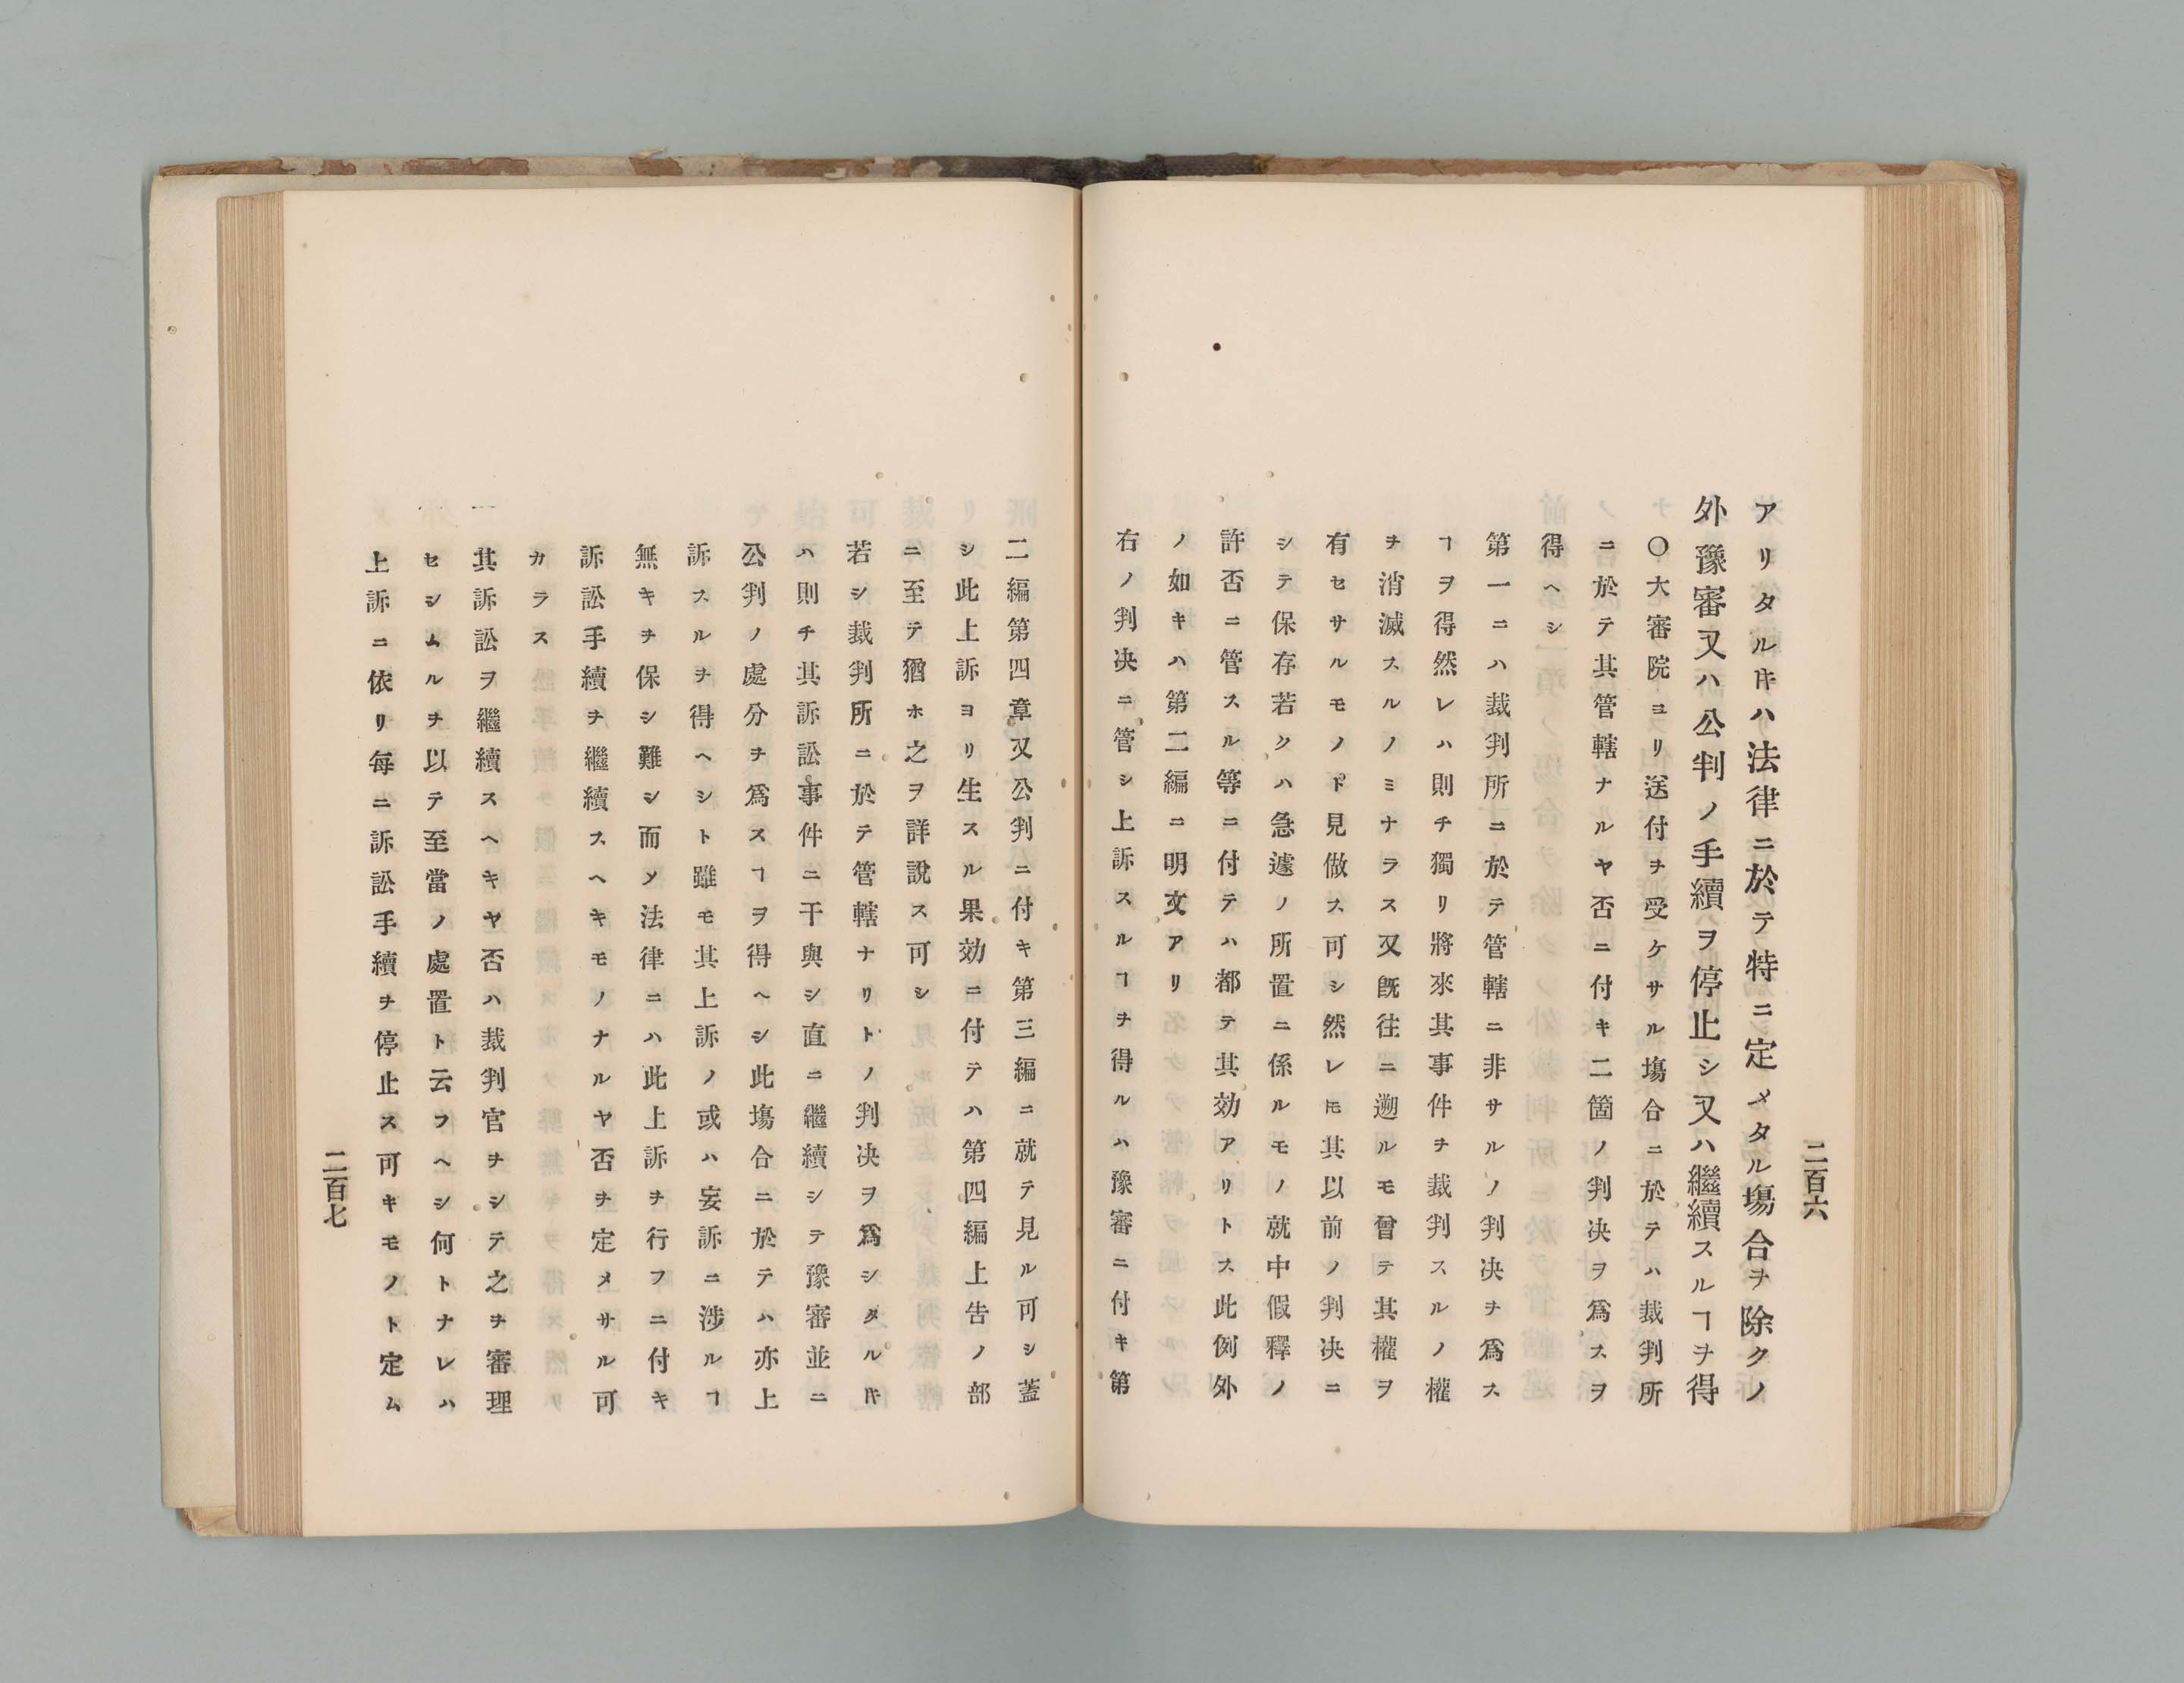 二百六
アリタル𪜈ハ法律ニ於テ特ニ定メタル塲合ヲ除クノ
外豫審又ハ公判ノ手續ヲ停止シ又ハ繼續スルヿヲ得
〇大審院ヨリ送付ヲ受ケサル塲合ニ於テハ裁判所
ニ於テ其管轄ナルヤ否ニ付キ二箇ノ判决ヲ爲スヲ
得ヘシ
第一ニハ裁判所ニ於テ管轄ニ非サルノ判决ヲ爲ス
ヿヲ得然レハ則チ獨リ將來其事件ヲ裁判スルノ權
ヲ消滅スルノミナラス又既往ニ遡ルモ曾テ其權ヲ
有セサルモノト見做ス可シ然レ𪜈其以前ノ判决ニ
シテ保存若クハ急遽ノ所置ニ係ルモノ就中假釋ノ
許否ニ管スル等ニ付テハ都テ其効アリトス此例外
ノ如キハ第二編ニ明文アリ
右ノ判决ニ管シ上訴スルヿヲ得ルハ豫審ニ付キ第
二編第四章又公判ニ付キ第三編ニ就テ見ル可シ蓋
シ此上訴ヨリ生スル果効ニ付テハ第四編上告ノ部
ニ至テ猶ホ之ヲ詳說ス可シ
若シ裁判所ニ於テ管轄ナリトノ判决ヲ爲シタル𪜈
ハ則チ其訴訟事件ニ干與シ直ニ繼續シテ豫審並ニ
公判ノ處分ヲ爲スヿヲ得ヘシ此塲合ニ於テハ亦上
訴スルヲ得ヘシト雖モ其上訴ノ或ハ妄訴ニ涉ルヿ
無キヲ保シ難シ而メ法律ニハ此上訴ヲ行フニ付キ
訴訟手續ヲ繼續スヘキモノナルヤ否ヲ定メサル可
カラス
其訴訟ヲ繼續スヘキヤ否ハ裁判官ヲシテ之ヲ審理
セシムルヲ以テ至當ノ處置ト云フヘシ何トナレハ
上訴ニ依リ每ニ訴訟手續ヲ停止ス可キモノト定ム
二百七